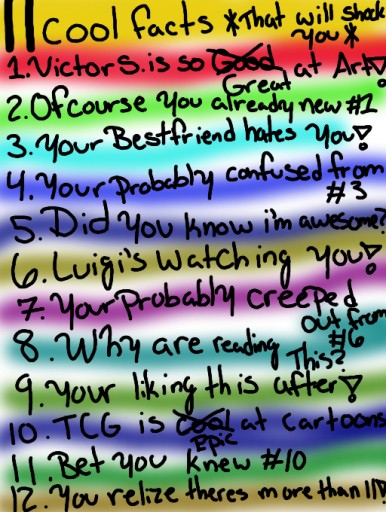 11 cool facts *That will shock
you*
1. Victor S. is so Good at Art!
Great
2. Ofcourse you already new #1
3. Your Bestfriend hates you!
4. Your Probably confused from
#3
5. Did you know i'm awesome?
6. Luigi's watching you!
7. Your Probably creeped
out from
#6
8. Why are reading
This?
9. Your liking this after!
10. TCG is Cool at cartoons
Epic
11. Bet you knew #10
12. You relize theres more than 11!